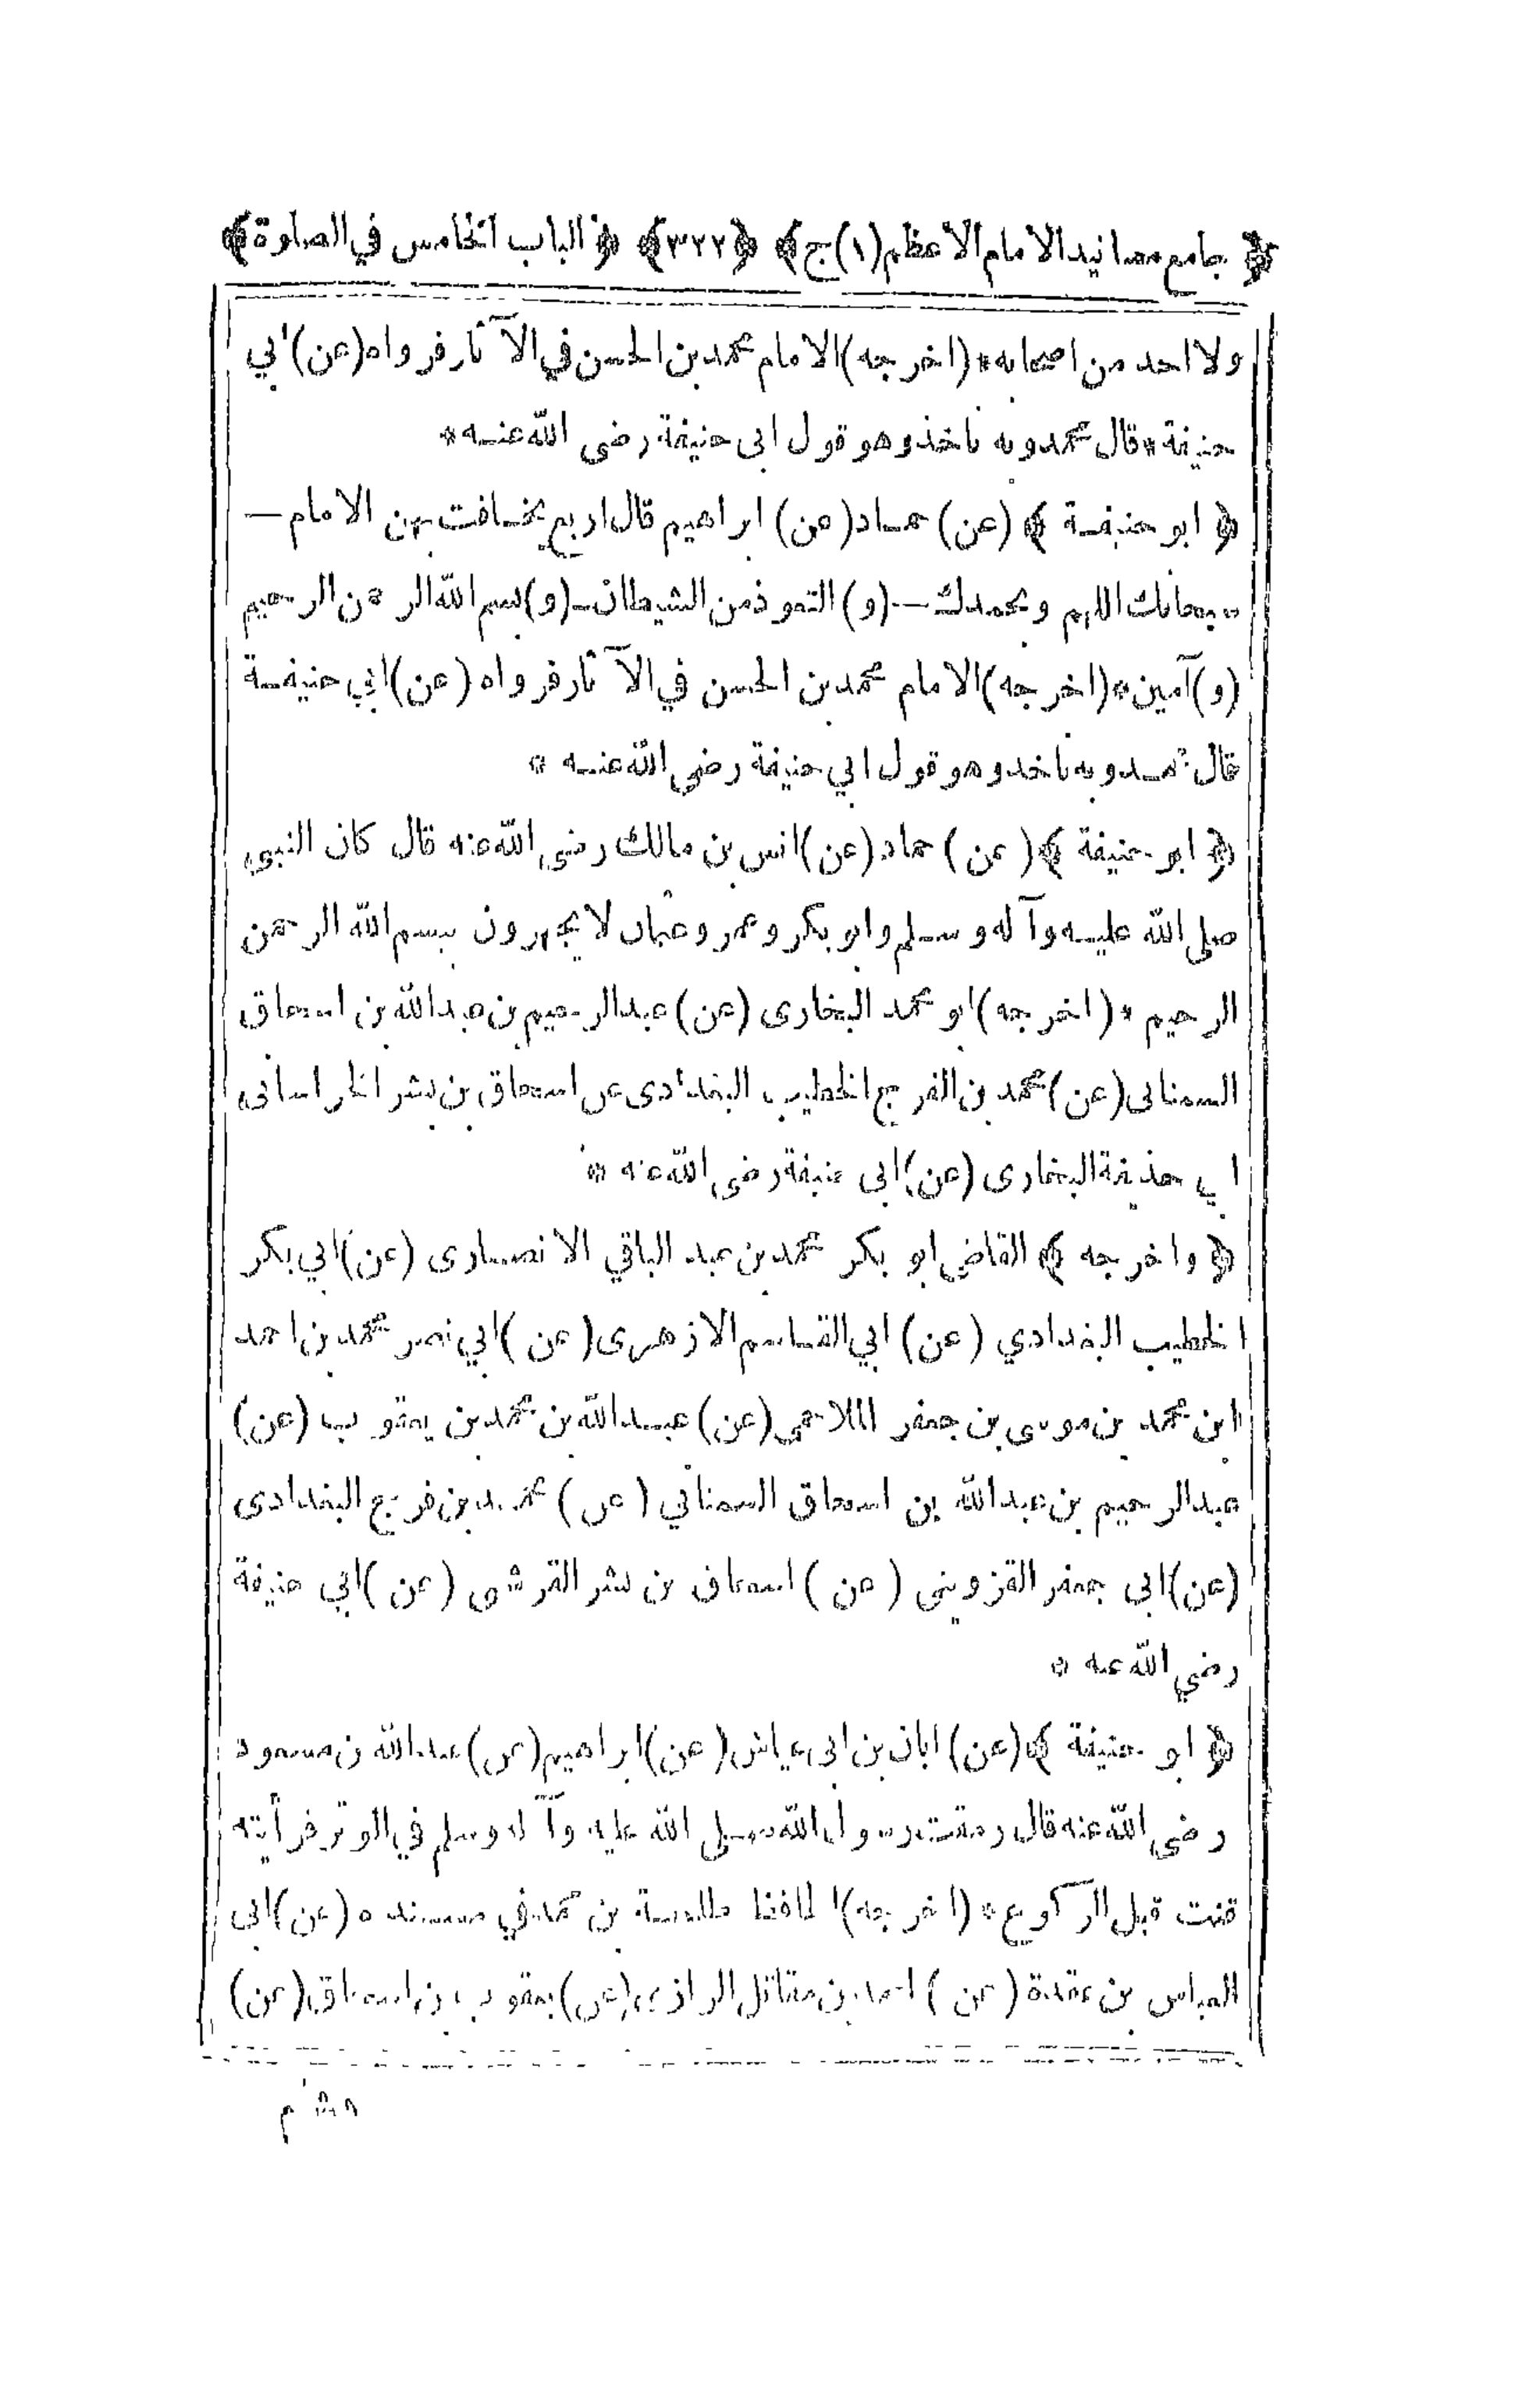 ﴿ جامع مسانيد الامام الاعظم (١) ج ﴾ ﴿ ٣٢٢ ﴾ ﴿ الباب الخامس في الصلوة ﴾
ولا احد من اصحابه * (اخرجه) الامام محمد بن الحسن في الآثار فرواه (عن) ابي
حنيفة * قال محمد وبه ناخذ وهو قول ابى حنيفة رضى الله عنه *
﴿ ابو حنيفة ﴾ (عن) حماد (عن) ابراهيم قال اربع يخافت بهن الامام —
سبحانك اللهم وبحمدك — (و) التعوذ من الشيطان — (و) بسم الله الرحمن الرحيم
(و) آمين * (اخرجه) الامام محمد بن الحسن في الآثار فرواه (عن) ابي حنيفة
قال محمد وبه ناخذ وهو قول ابي حنيفة رضى الله عنه *
﴿ ابو حنيفة ﴾ (عن) حماد (عن) انس بن مالك رضى الله عنه قال كان النبى
صلى الله عليه وآله وسلم وابو بكر وعمر وعثمان لا يجهرون ببسم الله الرحمن
الرحيم * (اخرجه) ابو محمد البخارى (عن) عبد الرحيم بن عبد الله بن اسحاق
السمنانى (عن) محمد بن الفرج الخطيب البغدادى عن اسحاق بن بشر الخراسانى
ابي حذيفة البخارى (عن) ابى حنيفة رضى الله عنه *
﴿ واخرجه ﴾ القاضي ابو بكر محمد بن عبد الباقي الانصارى (عن) ابي بكر
الخطيب البغدادي (عن) ابي القاسم الازهرى (عن) ابي نصر محمد بن احمد
ابن محمد بن موسى بن جعفر الملاحمى (عن) عبد الله بن محمد بن يعقوب (عن)
عبد الرحيم بن عبد الله بن اسحاق السمناني (عن) محمد بن فرج البغدادى
(عن) ابى جعفر القزوينى (عن) اسحاق بن بشر القرشى (عن) ابي حنيفة
رضي الله عنه *
﴿ ابو حنيفة ﴾ (عن) ابان بن ابى عياش (عن) ابراهيم (عن) عبد الله بن مسعود
رضى الله عنه قال رمقت رسول الله صلى الله عليه وآله وسلم في الوتر فرأيته
قنت قبل الركوع * (اخرجه) الحافظ طلحة بن محمد في مسنده * (عن) ابى
العباس بن عقدة (عن) احمد بن مقاتل الرازى (عن) يعقوب بن اسحاق (عن)